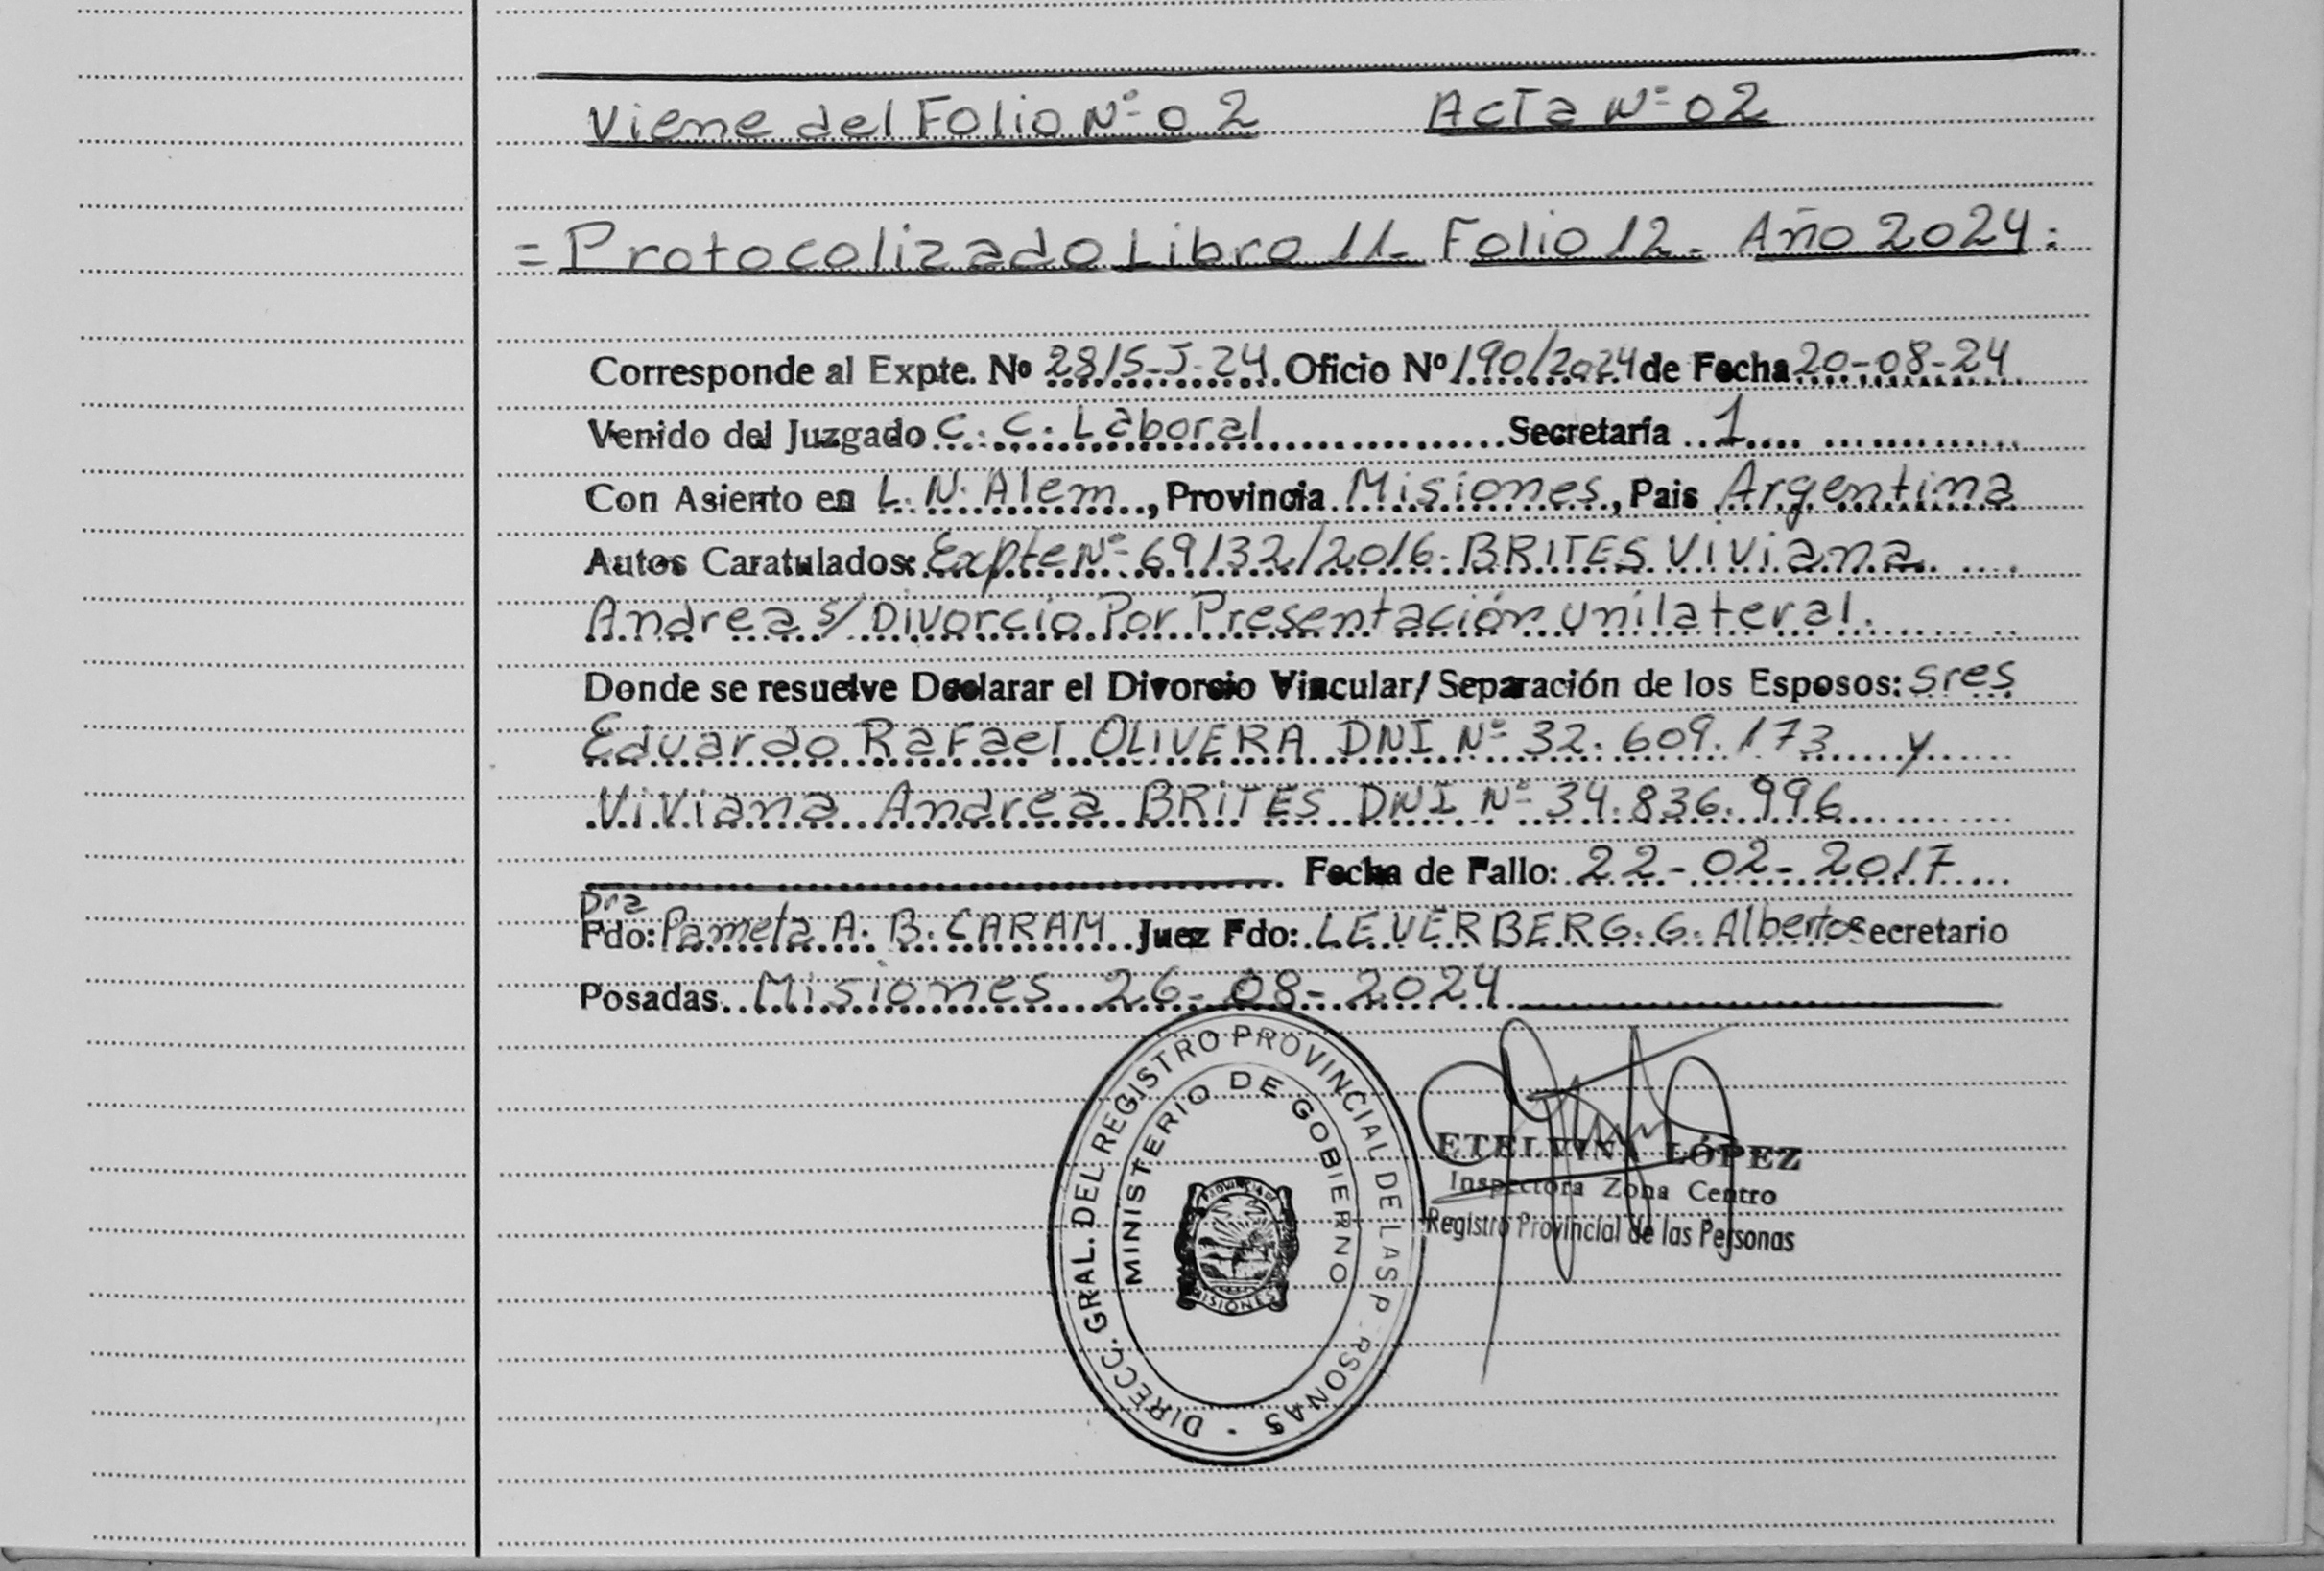 Viene del Folio Nº 02 Acta Nº 02
= Protocolizado Libro 11- Folio 12- Año 2024:
Corresponde al Expte. Nº 2815-J-24 Oficio Nº 190/2024 de Fecha 20-08-24
Venido del Juzgado C. C. Laboral Secretaría 1
Con Asiento en L. N. Alem, Provincia Misiones, Pais Argentina
Autos Caratulados: Expte Nº 69132/2016. BRITES Viviana
Andrea s/ Divorcio Por Presentación unilateral.
Donde se resuelve Declarar el Divorcio Vincular/ Separación de los Esposos: sres
Eduardo Rafael OLIVERA DNI Nº 32.609.173 y
Viviana Andrea BRITES DNI Nº 34.836.996
Fecha de Fallo: 22-02-2017
Dra
Fdo: Pamela A. B. CARAM Juez Fdo: LEVERBERG. G. Alberto Secretario
Posadas Misiones 26-08-2024
DIRECC. GRAL. DEL REGISTRO PROVINCIAL DE LAS P RSONAS
MINISTERIO DE GOBIERNO
PROVINCIA DE
MISIONES
ETELVINA LÓPEZ
Inspectora Zona Centro
Registro Provincial de las Personas